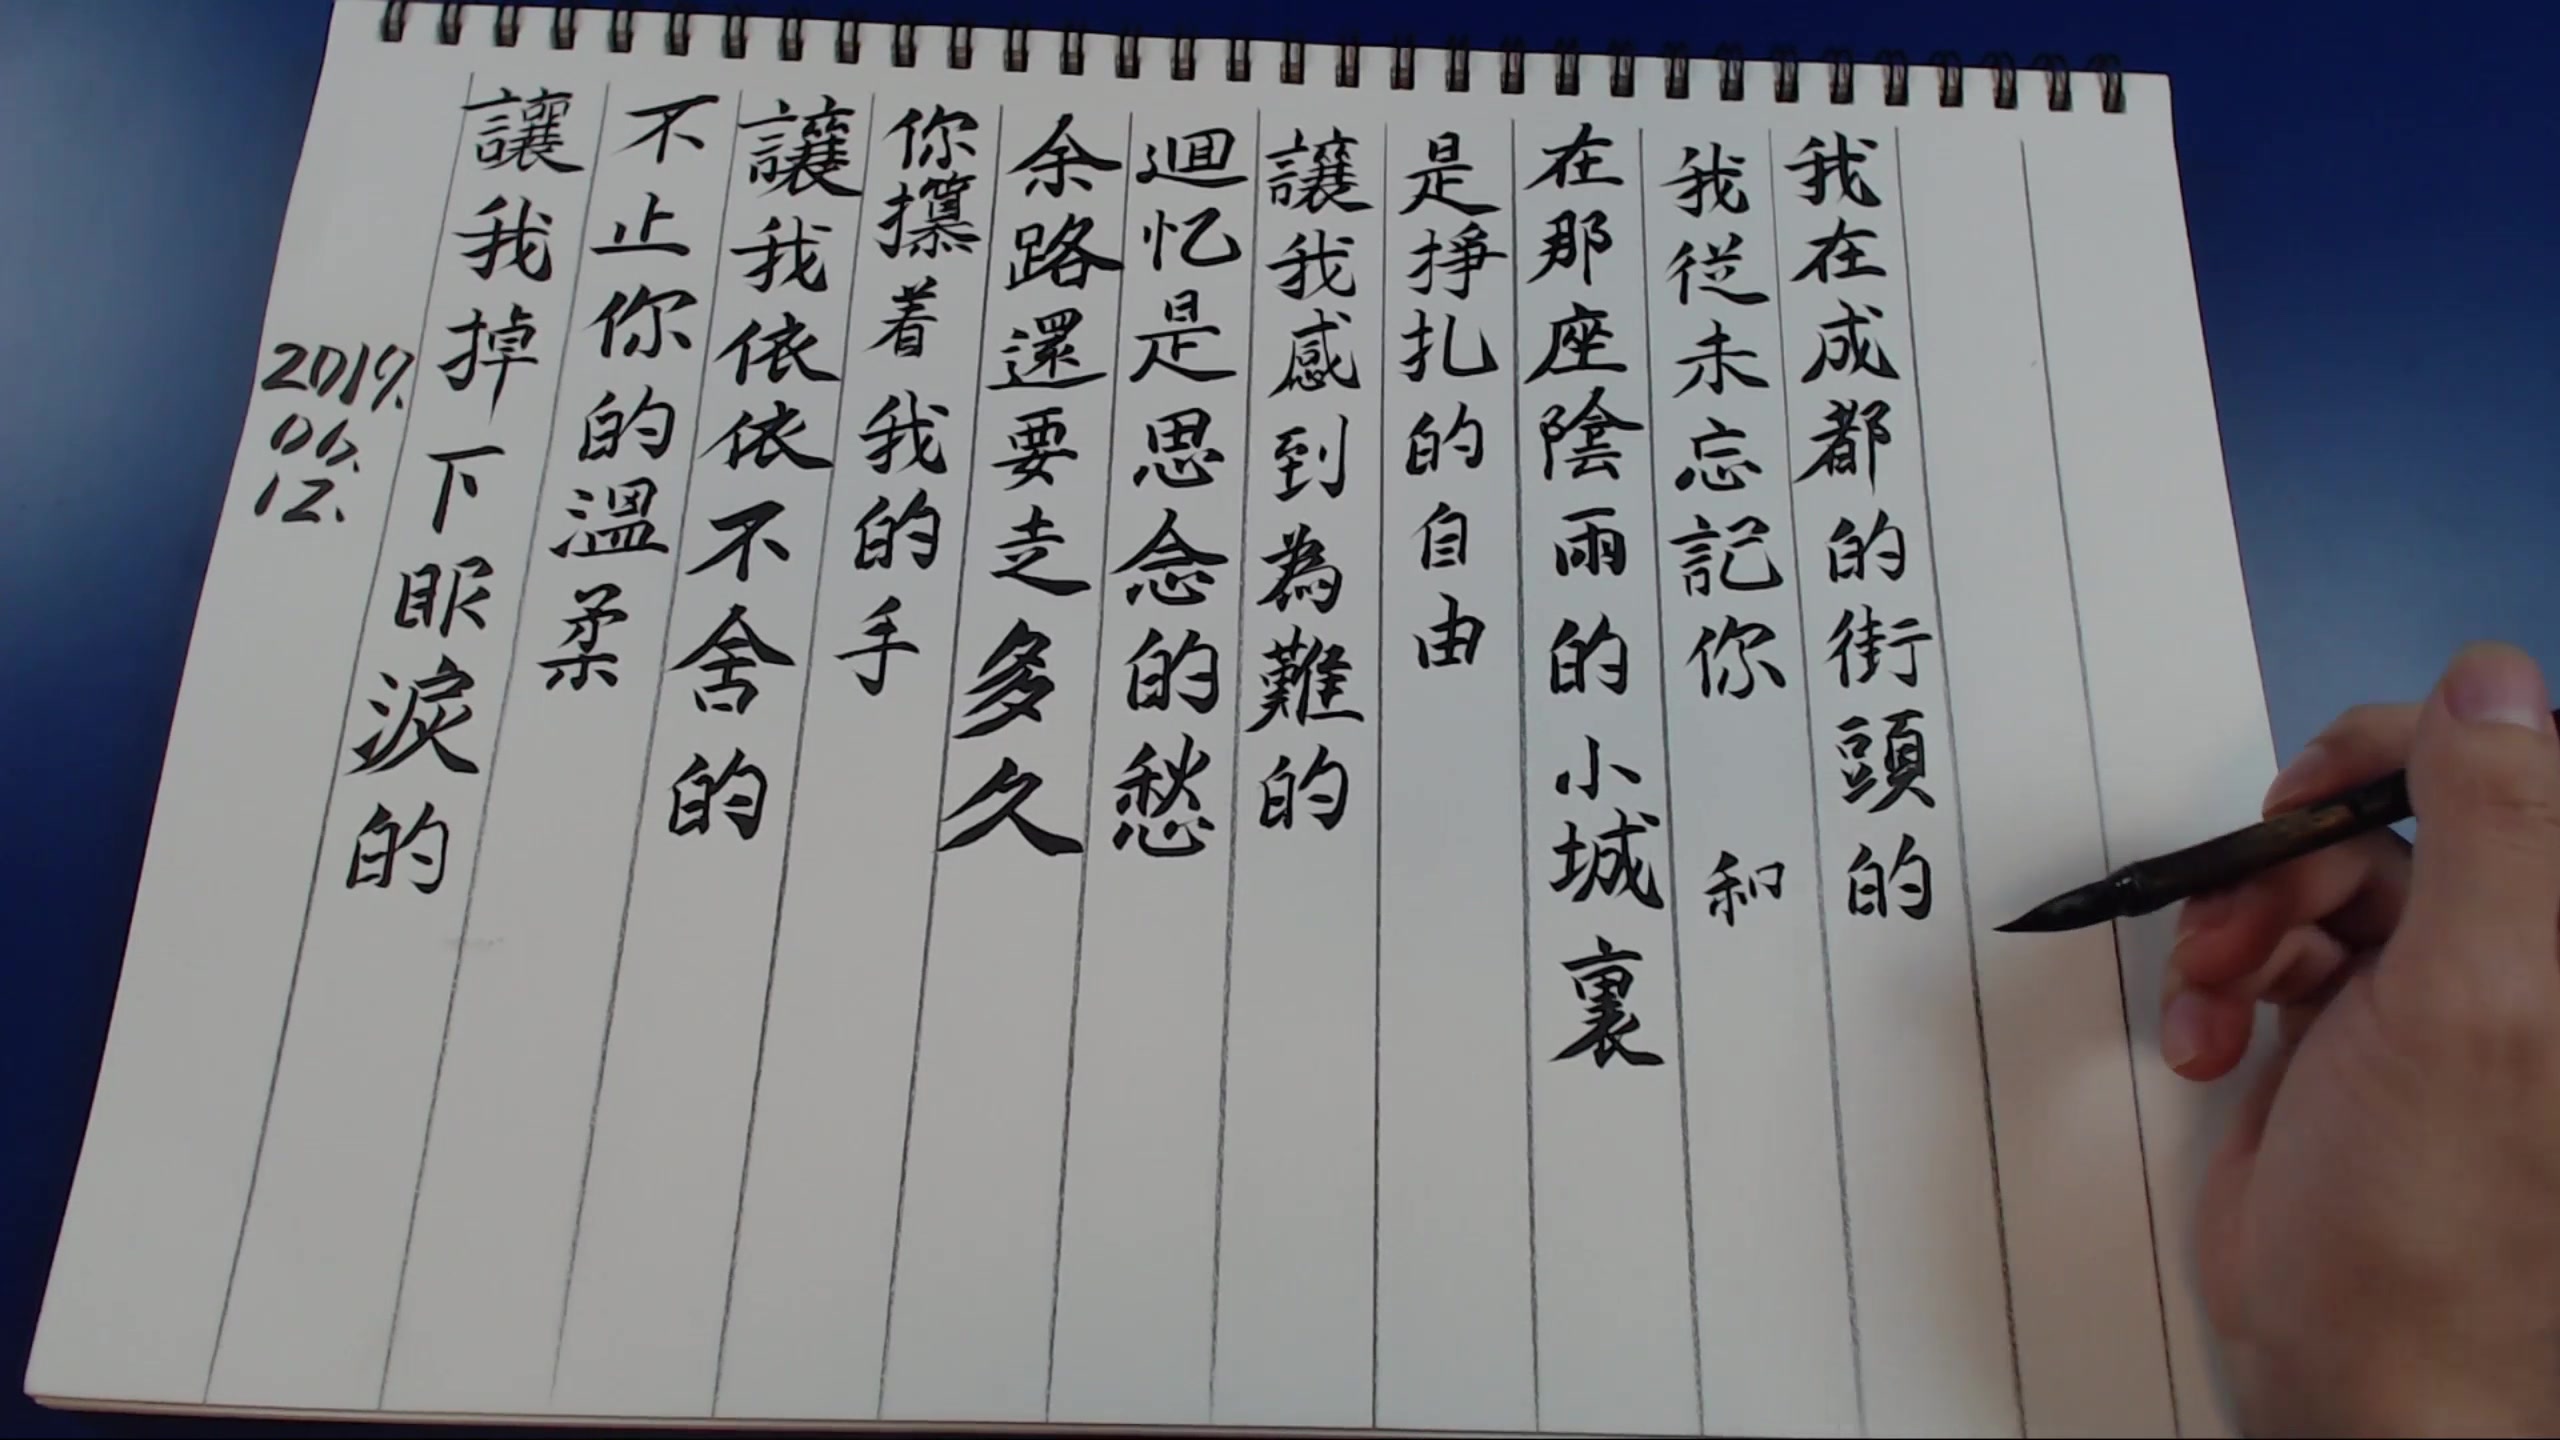 2019.
06.
12.
讓我掉下眼淚的
不止你的溫柔
讓我依依不舍的
你攥着我的手
余路還要走多久
迴忆是思念的愁
讓我感到為難的
是掙扎的自由
在那座陰雨的小城裏
我從未忘記你 和
我在成都的街頭的